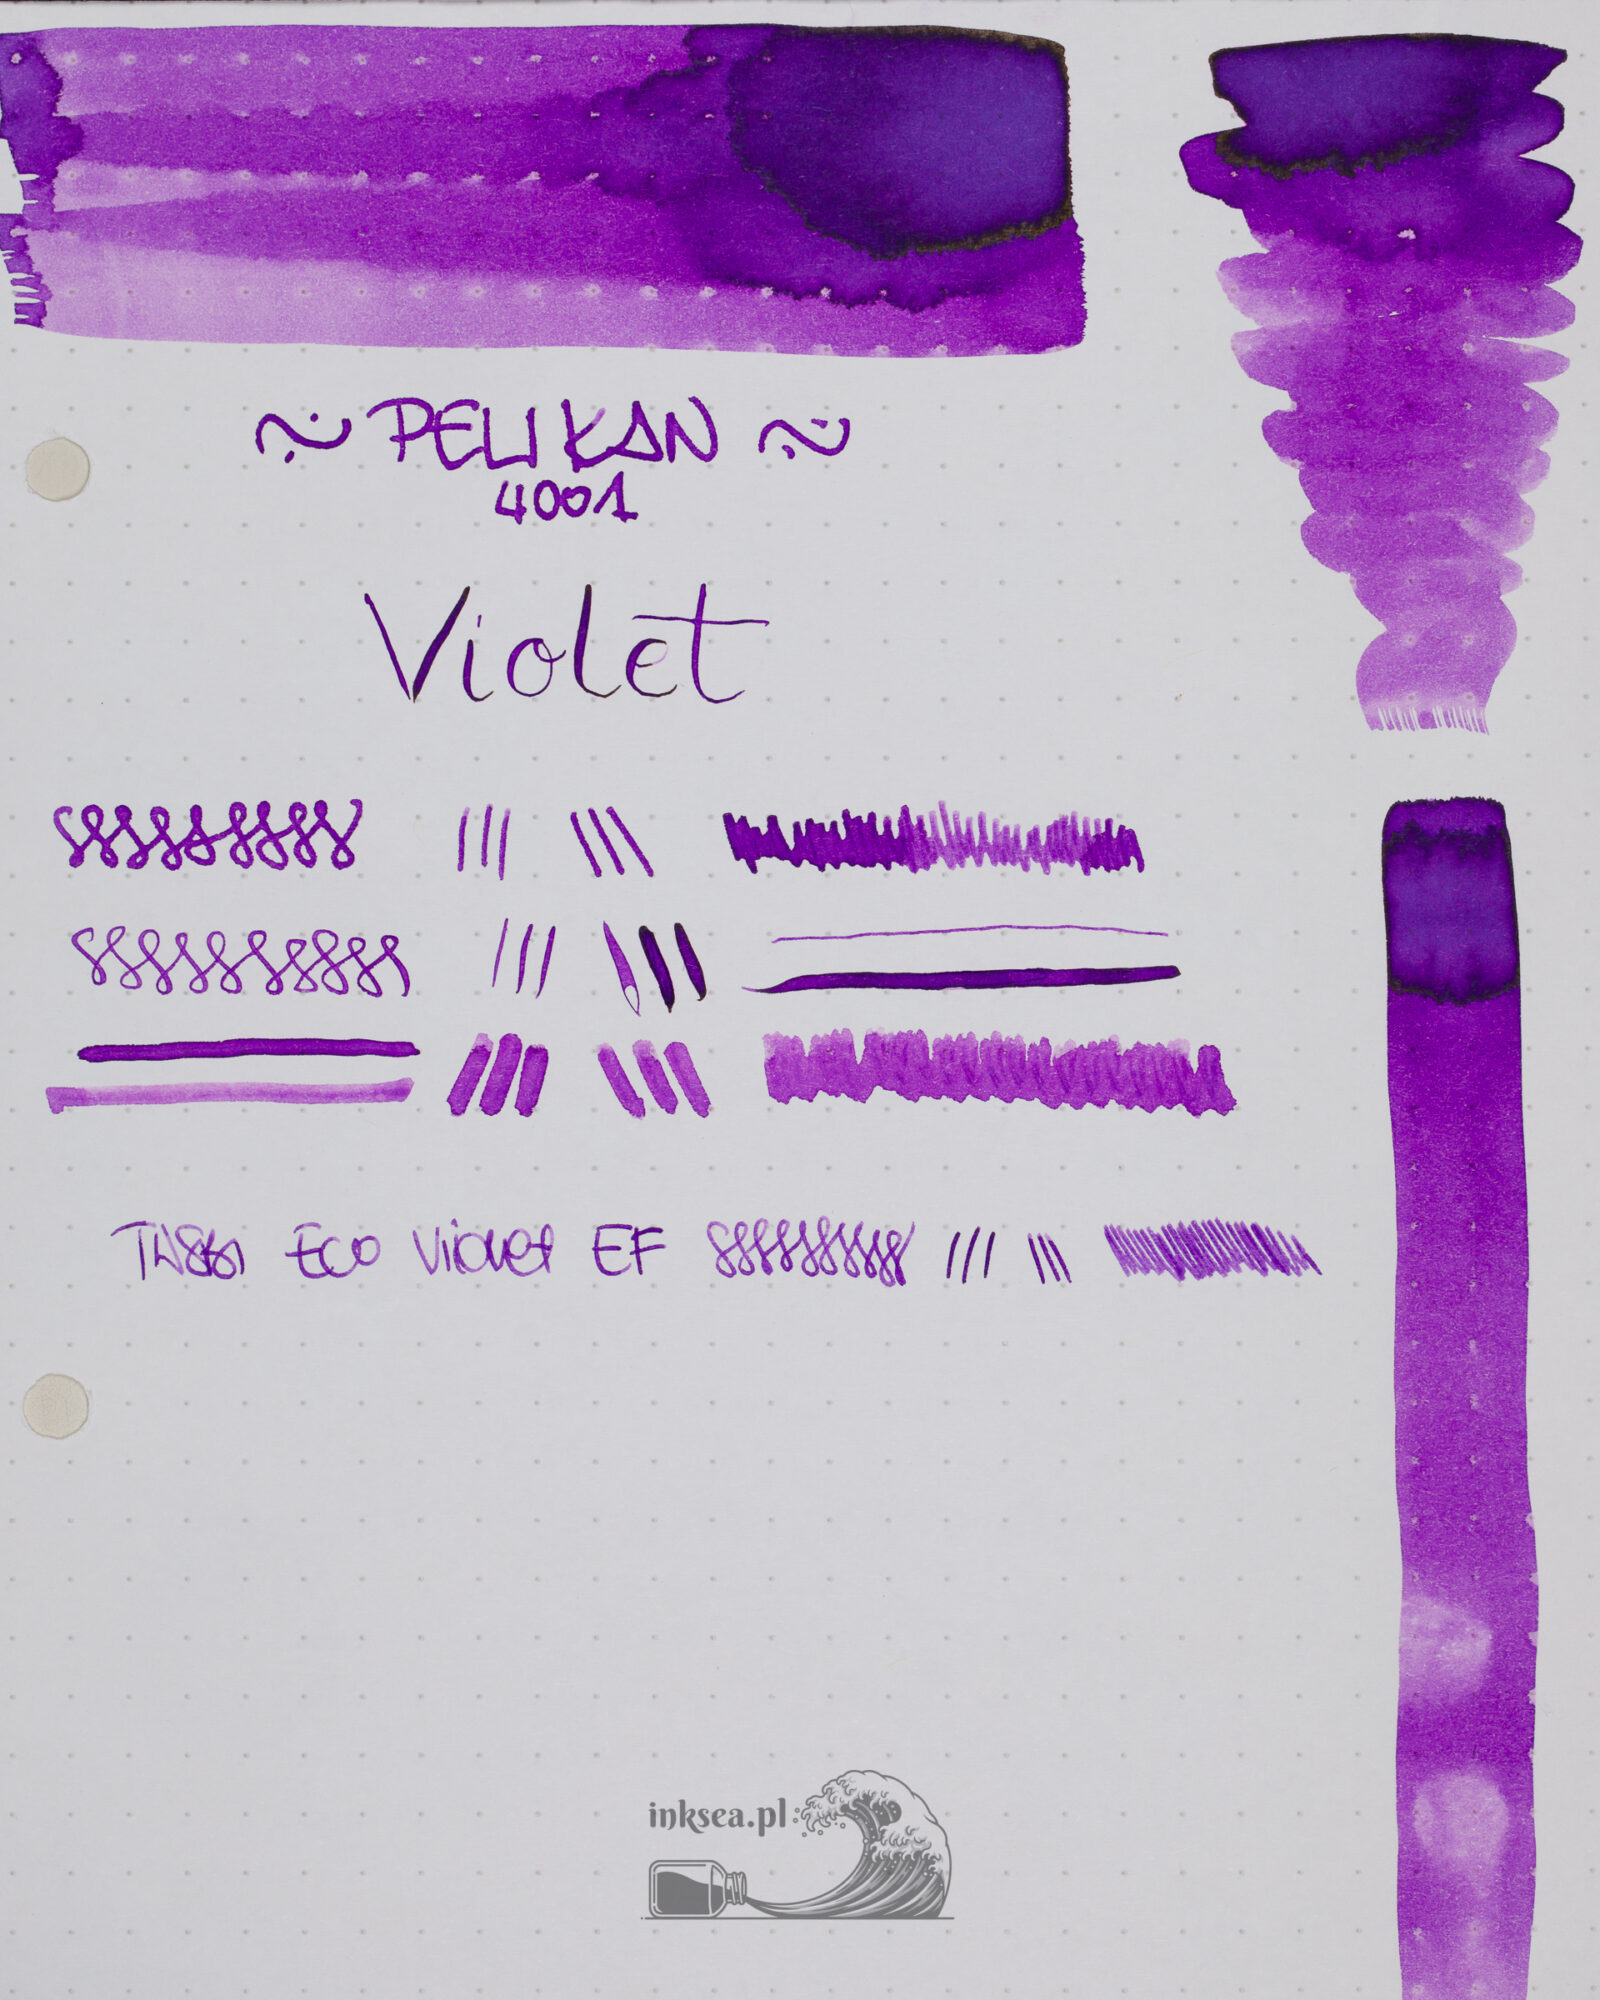 ~ PELIKAN ~
4001
Violet
TWSBI Eco Violet EF
inksea.pl